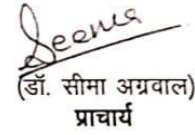 Seema
(डॉ. सीमा अग्रवाल)
प्राचार्य